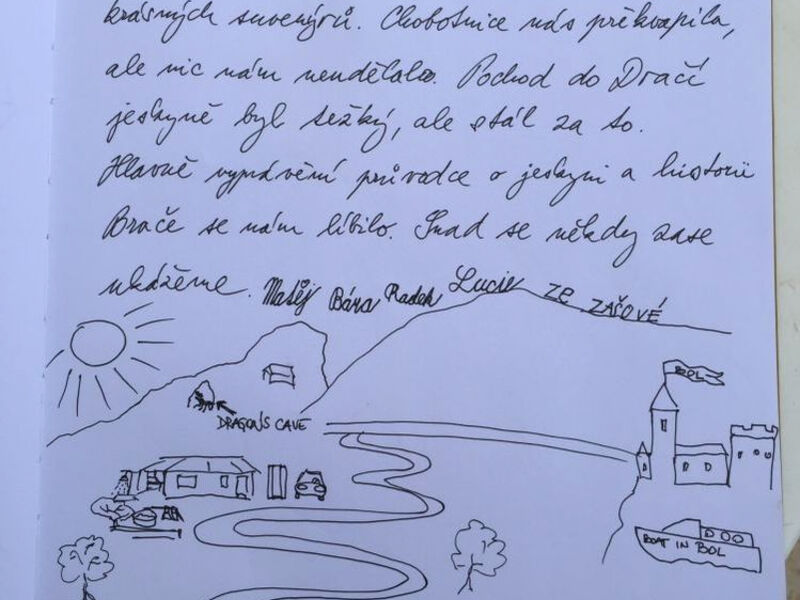 krásných suvenýrů. Chobotnice nás překvapila,
ale nic nám neudělala. Pochod do Dračí
jeskyně byl těžký, ale stál za to.
Hlavně vyprávění průvodce o jeskyni a historii
Brače se nám líbilo. Snad se někdy zase
ukážeme. Matěj Bára Radek Lucie ZE ZAŠOVÉ
BOL
DRAGONS CAVE
BOAT IN BOL